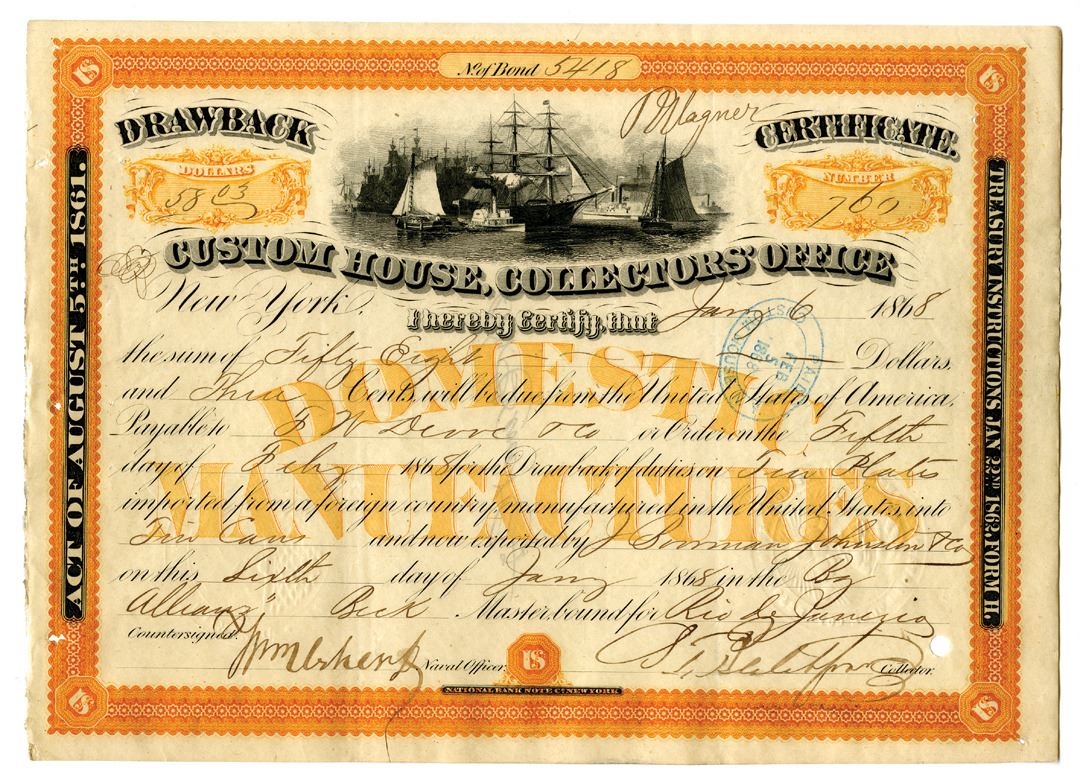 No. of Bond 5418
P Wagner
DRAWBACK
CERTIFICATE.
DOLLARS
58 03
NUMBER
760
CUSTOM HOUSE, COLLECTORS' OFFICE
New York, Jany 6 1868
I hereby Certify, that
the sum of Fifty Eight Dollars,
and Three Cents, will be due from the United States of America,
Payable to F W Devoe & Co or Order on the Fifth
day of Feby 1868 for the Drawback of duties on Tin Plates
imported from a foreign country manufactured in the United States, into
Tin Cans and now exported by J Boorman Johnston & Co
on this Sixth day of Jany 1868 in the
Beck Master bound for Rio de Janeiro
Countersigned.
Naval Officer.
Collector.
US
NATIONAL BANK NOTE CO. NEW YORK
DOMESTIC
MANUFACTURES
ACT OF AUGUST 5TH. 1861.
TREASURY INSTRUCTIONS, JAN 22ND 1863, FORM H.
US
US
US
US
CUSTOM HOUSE
PAID
FEB 5
1868